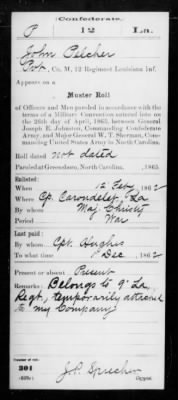 Confederate.
P 12 La.
John Pilcher
Pvt., Co. M, 12 Regiment Louisiana Inf.
Appears on a
Muster Roll
of Officers and Men paroled in accordance with the
terms of a Military Convention entered into on
the 26th day of April, 1865, between General
Joseph E. Johnston, Commanding Confederate
Army, and Major General W. T. Sherman, Com-
manding United States Army in North Carolina.
Roll dated not dated
Paroled at Greensboro, North Carolina, 1865.
Enlisted:
When 12 Feby, 1862
Where Cp. Carondelet, La
By whom Maj. Christy
Period War
Last paid:
By whom Cpt. Hughs
To what time 1 Dec, 1862
Present or absent Present
Remarks: Belongs to 9" La
Regt, temporarily attached
to my Company
Number of roll:
301
Copyist.